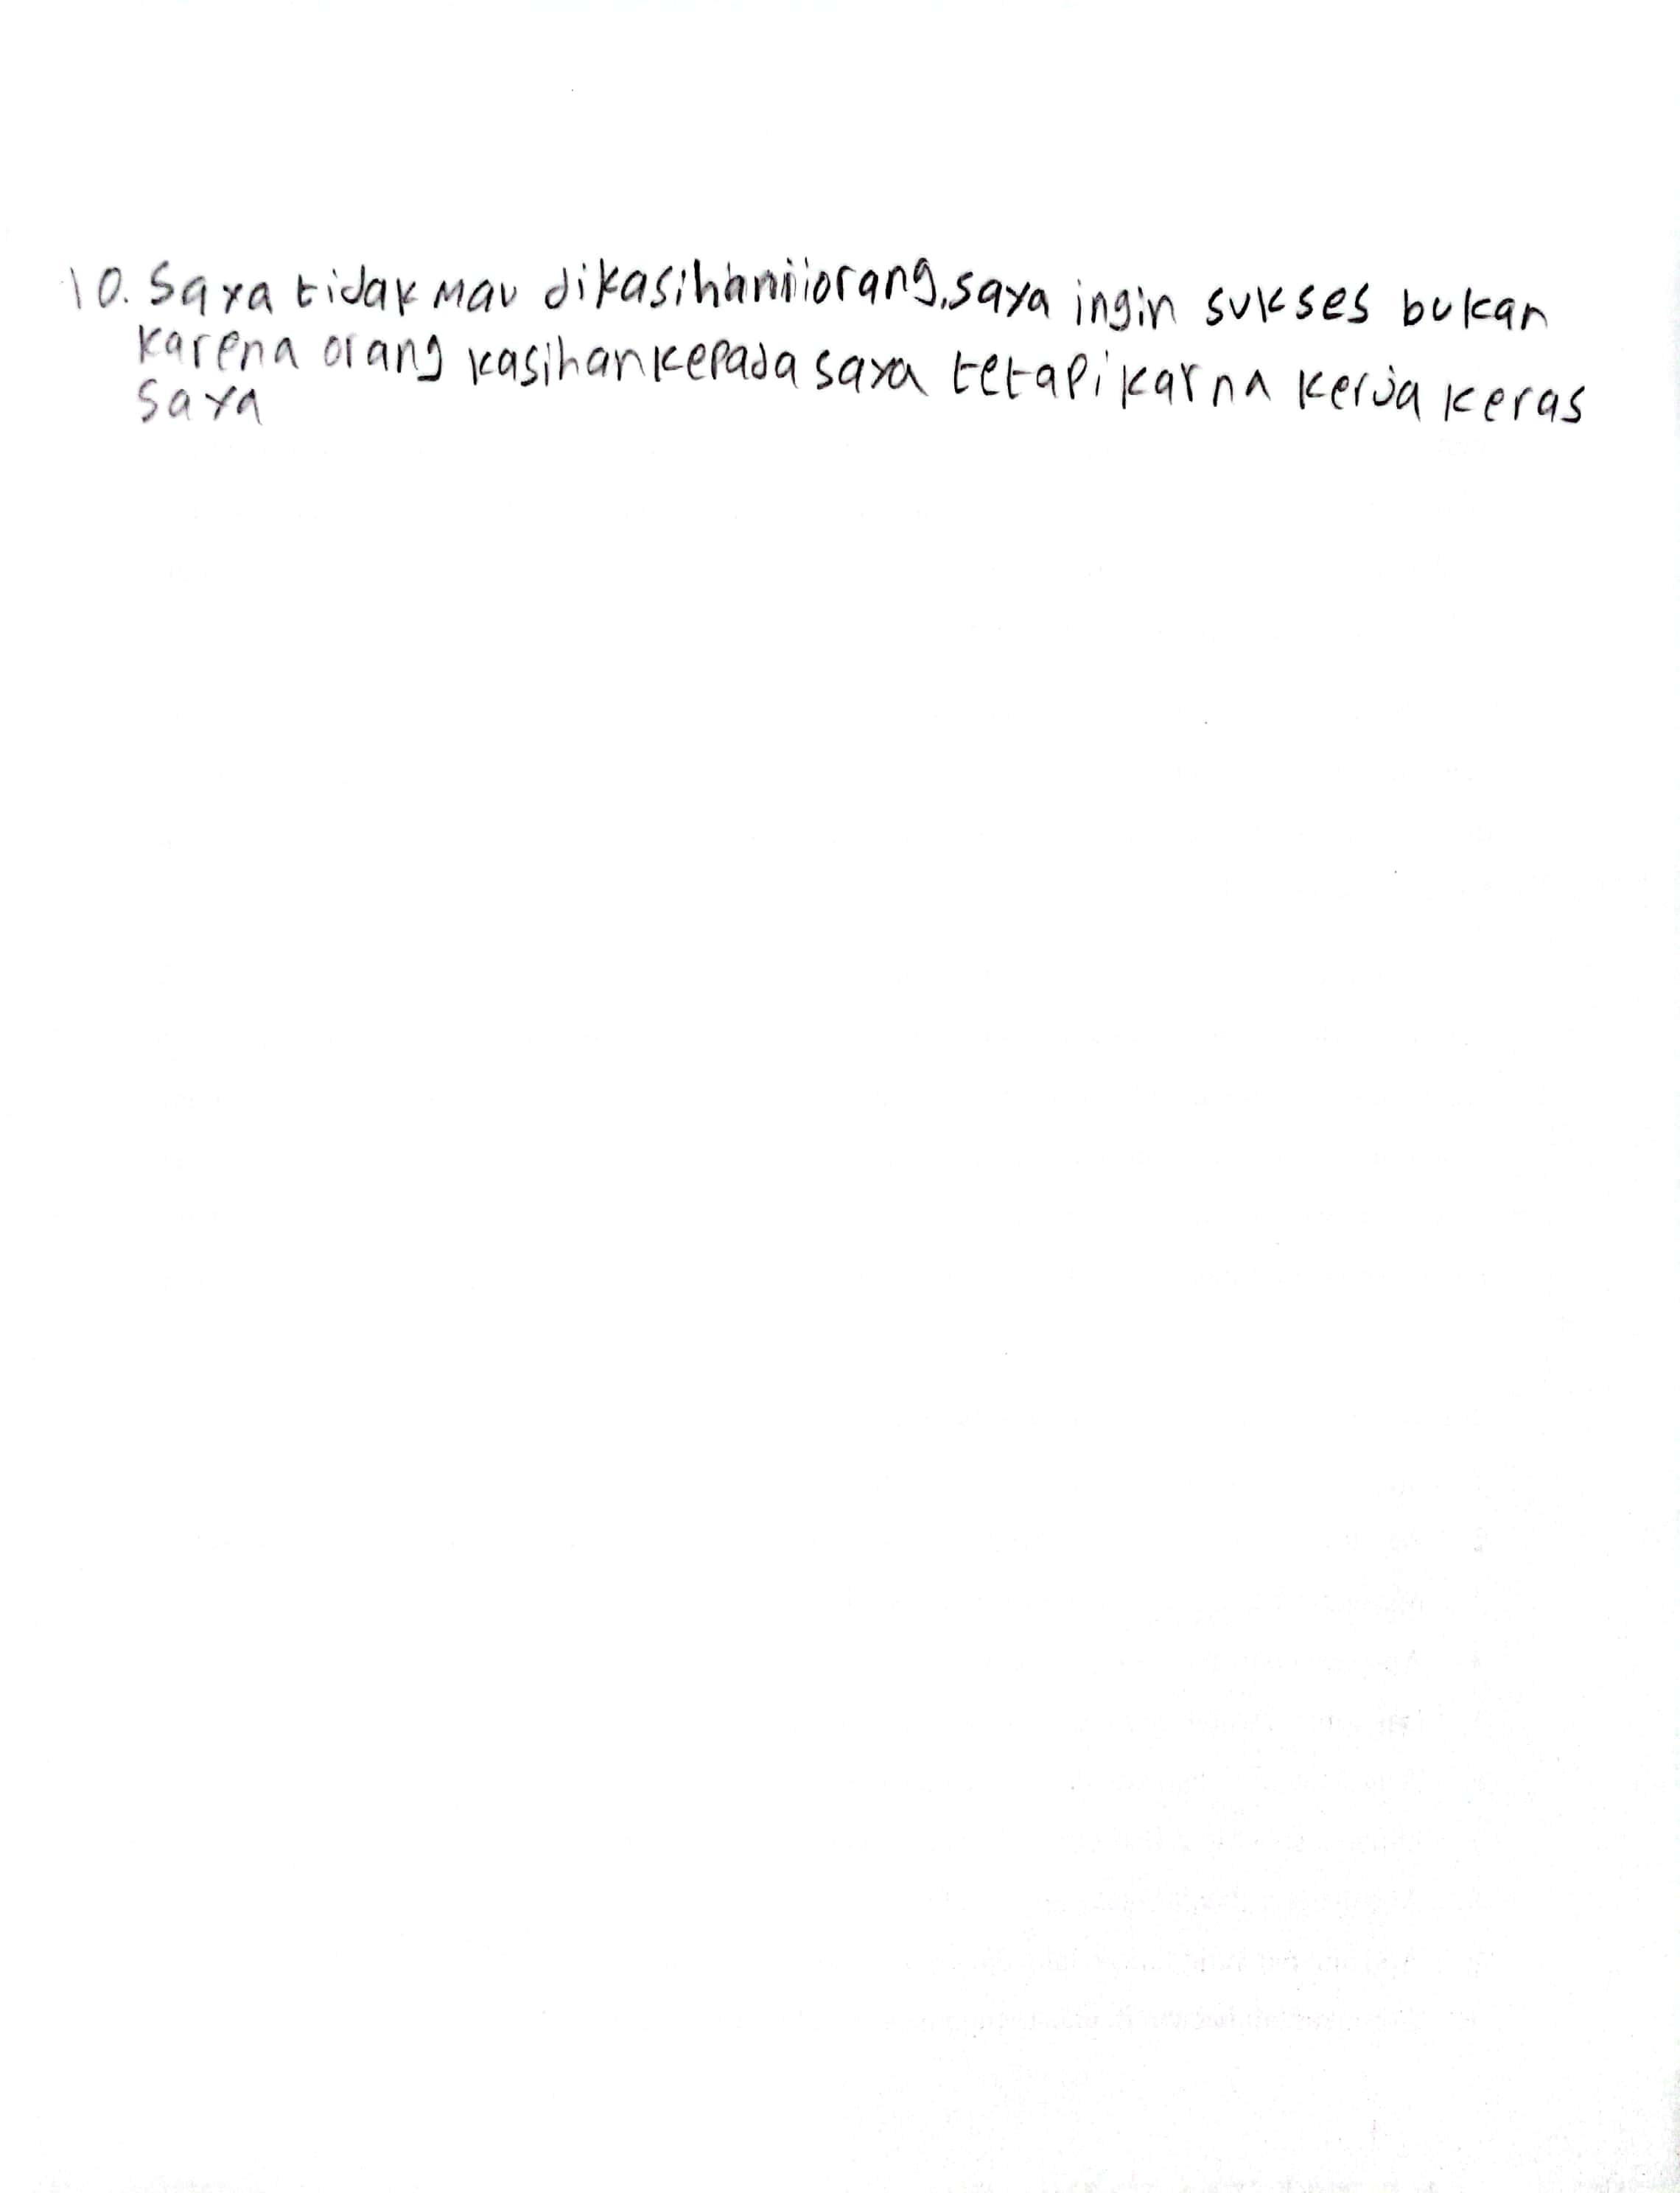 10. Saya tidak mau dikasihani orang, saya ingin sukses bukan
karena orang kasihan kepada saya tetapi karna kerja keras
saya